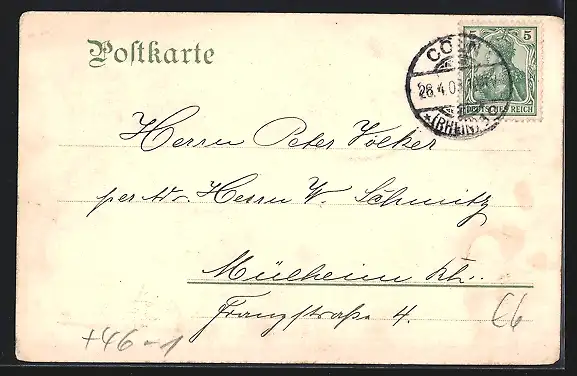 Postkarte
5
CÖLN
28.4.03
*(RHEIN)
DEUTSCHES REICH
Herrn Peter Völker
per Adr. Herrn W. Schmitz
Mülheim Rh.
Franzstraße 4.
66
+46-1